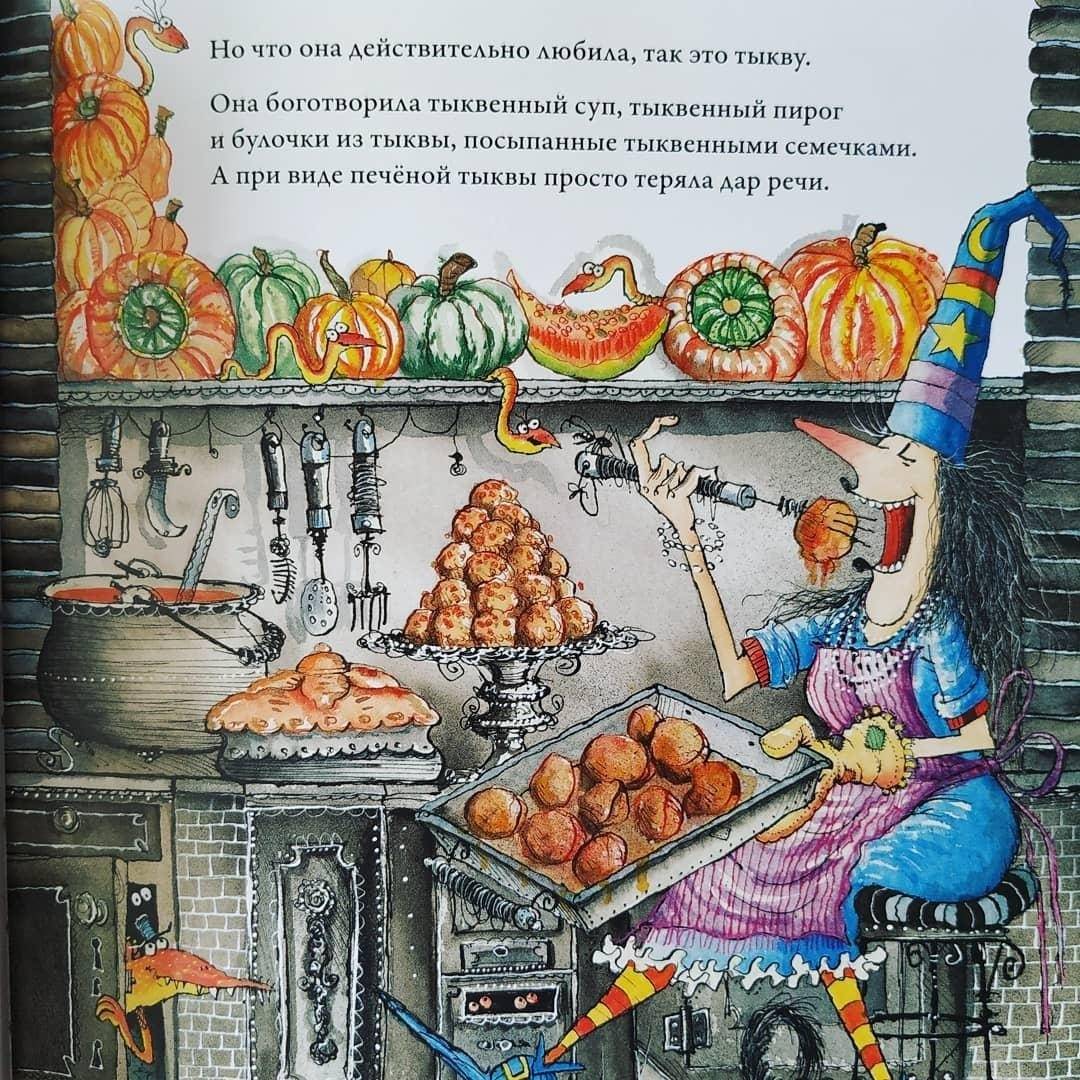 Но что она действительно любила, так это тыкву.
Она боготворила тыквенный суп, тыквенный пирог
и булочки из тыквы, посыпанные тыквенными семечками.
А при виде печёной тыквы просто теряла дар речи.